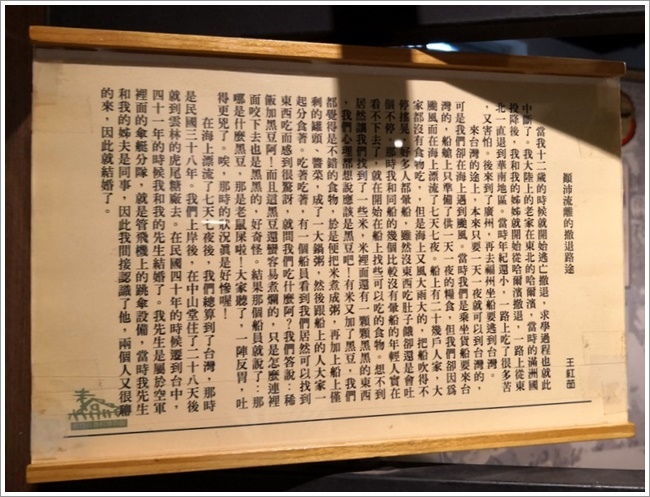 顛沛流離的撤退路途
王紅茵
當我十二歲的時候就開始逃亡撤退，求學過程也就此
中斷了。我大陸上的老家在東北的哈爾濱，當時的滿洲國
投降後，我和我的姊姊就開始從哈爾濱撤退，一路上從東
北一直退到華南地區。當時年紀還小，一路上吃了很多苦
，又害怕。後來到了廣州，再去福州坐船要逃到台灣。
來台灣的途上，本來只要一天一夜就可以到台灣的，
可是我們卻在海上遇到颱風。當時我們是乘坐貨船要來台
灣的，船艙上只準備了供一天一夜的糧食，但我們卻因為
颱風而在海上漂流了七天七夜。船上有二十幾戶人家，大
家都沒有食物吃，但是海上又風大雨大的，把船吹得不
停搖晃，好多人都暈船，雖然沒東西吃肚子餓卻還是會吐
個不停。那時我和同船的幾個比較沒有暈船的年輕人實在
看不下去了，就在開始在船上找些可以吃的食物。想不到
居然讓我們找到了一些米，米裡面還有一顆顆黑黑的東西
，我們心理都想說應該是黑豆吧！有米又加了黑豆，我們
都覺得是不錯的食物，於是便把米煮成粥，再加上船上僅
剩的罐頭、醬菜，成了一大鍋粥，然後跟船上的人大家一
起分食著。吃著吃著，有一個船員看到我們居然可以找到
東西吃而感到很驚訝，就問我們吃什麼阿？我們答說：稀
飯加黑豆阿！而且這黑豆還蠻容易煮爛的，只是怎麼連裡
面咬下去也是黑黑的，好奇怪。結果那個船員就說了：那
哪是什麼黑豆，那是老鼠屎啦！大家聽了，一陣反胃，吐
得更兇了。唉，那時的狀況真是好慘喔！
在海上漂流了七天七夜後，我們總算到了台灣，那時
是民國三十八年。我們上岸後，在中山堂住了二十八天後
就到雲林的虎尾糖廠去。在民國四十年的時候遷到台中，
四十一年的時候我和我的先生結婚了。我先生是屬於空軍
裡面的傘艇分隊，就是管飛機上的跳傘設備，當時我先生
和我的姊夫是同事，因此我間接認識了他，兩個人又很聊
的來，因此就結婚了。